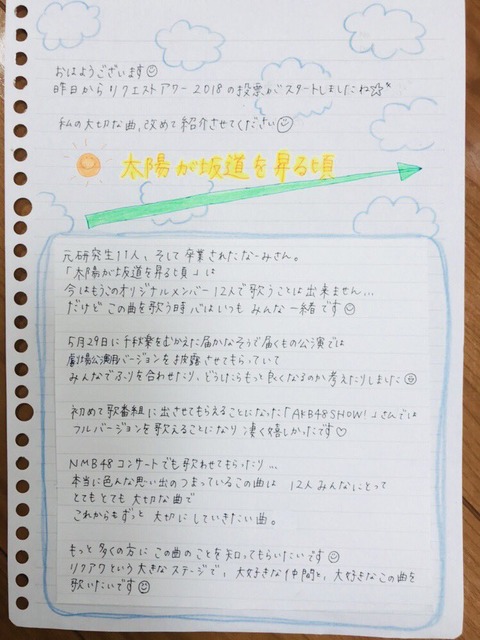 おはようございます☺
昨日からリクエストアワー2018の投票がスタートしましたね☆
私の大切な曲、改めて紹介させてください☺
太陽が坂道を昇る頃
元研究生11人、そして卒業されたなーみさん。
「太陽が坂道を昇る頃」は
今はもうこのオリジナルメンバー12人で歌うことは出来ません…
だけど この曲を歌う時 心はいつも みんな一緒です☺
5月29日に千秋楽をむかえた届かなそうで届くもの公演では
劇場公演用バージョンを披露させてもらっていて
みんなでふりを合わせたり、どうしたらもっと良くなるのか考えたりしました☺
初めて歌番組に出させてもらえることになった「AKB48SHOW!」さんでは
フルバージョンを歌えることになり 凄く嬉しかったです♡
NMB48コンサートでも歌わせてもらったり…
本当に色んな思い出のつまっているこの曲は 12人みんなにとって
とてもとても 大切な曲で
これからもずっと 大切にしていきたい曲。
もっと多くの方に この曲のことを知ってもらいたいです☺
リクアワという大きなステージで、大好きな仲間と、大好きなこの曲を
歌いたいです☺